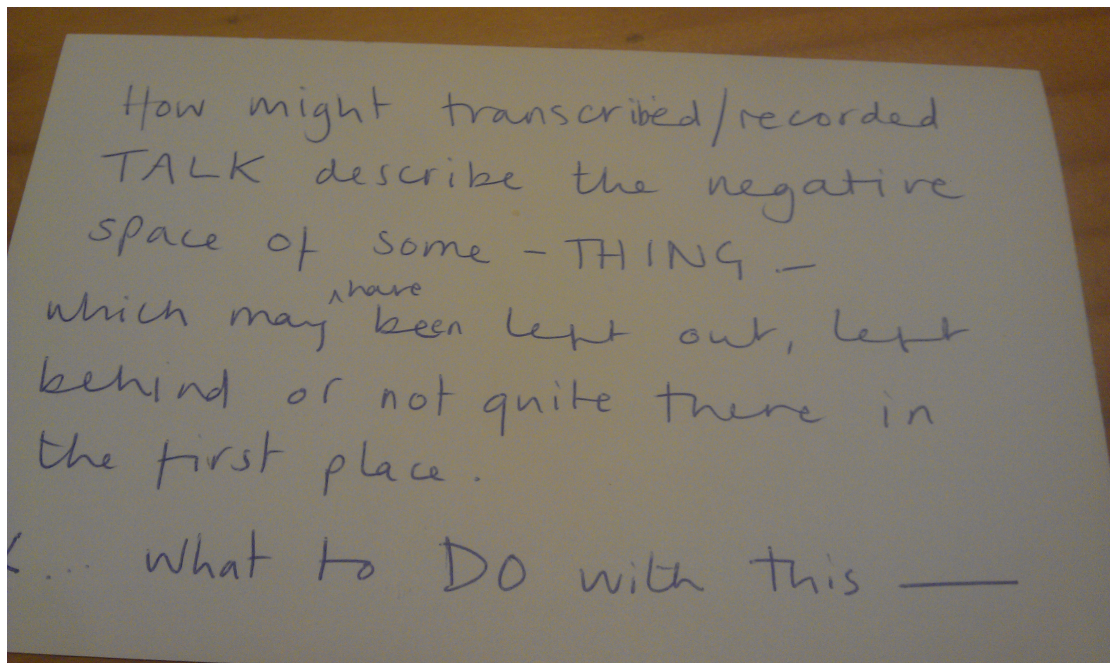 How might transcribed/recorded
TALK describe the negative
space of some - THING -
which may ^have been left out, left
behind or not quite there in
the first place.
... what to DO with this ___